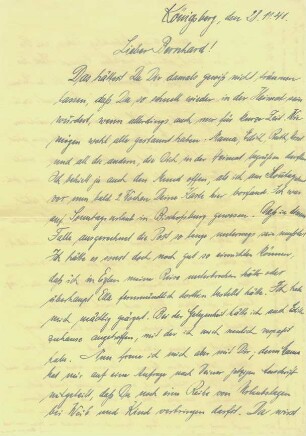 Königsberg, den 23.11.41.
Lieber Bernhard!
Das hättest Du Dir damals gewiß nicht träumen
lassen, daß Du so schnell wieder in der Heimat sein
würdest, wenn allerdings auch nur für kurze Zeit. Die
wohl alle gestaunt haben. Mama, Edith, Ruth,
und all die andern, die Dich in der Heimat begrüßen durften.
Ich behielt ja auch den Mund offen, als ich am Sonntag
vor nun bald 2 Wochen Deine Karte hier vorfand. Ich war
auf Sonntagsurlaub in Bischofsburg gewesen. Daß in dem
Falle ausgerechnet die Post so lange unterwegs sein mußte!
Ich hätte es sonst doch noch gut so einrichten können,
daß ich in meine Reise unterbrochen hätte oder
überhaupt Elli fernmündlich dorthin bestellt hätte. Ich habe
mich mächtig geärgert. Bei der Gelegenheit hätte ich auch
zuhause angetroffen, mit der ich mich neulich
habe. Nun freue ich mich aber mit Dir, denn Mama
hat mir auf eine Anfrage nach Deiner jetzigen Anschrift
mitgeteilt, daß Du noch eine Reihe von Urlaubstagen
bei Weib und Kind verbringen darfst. Da wird